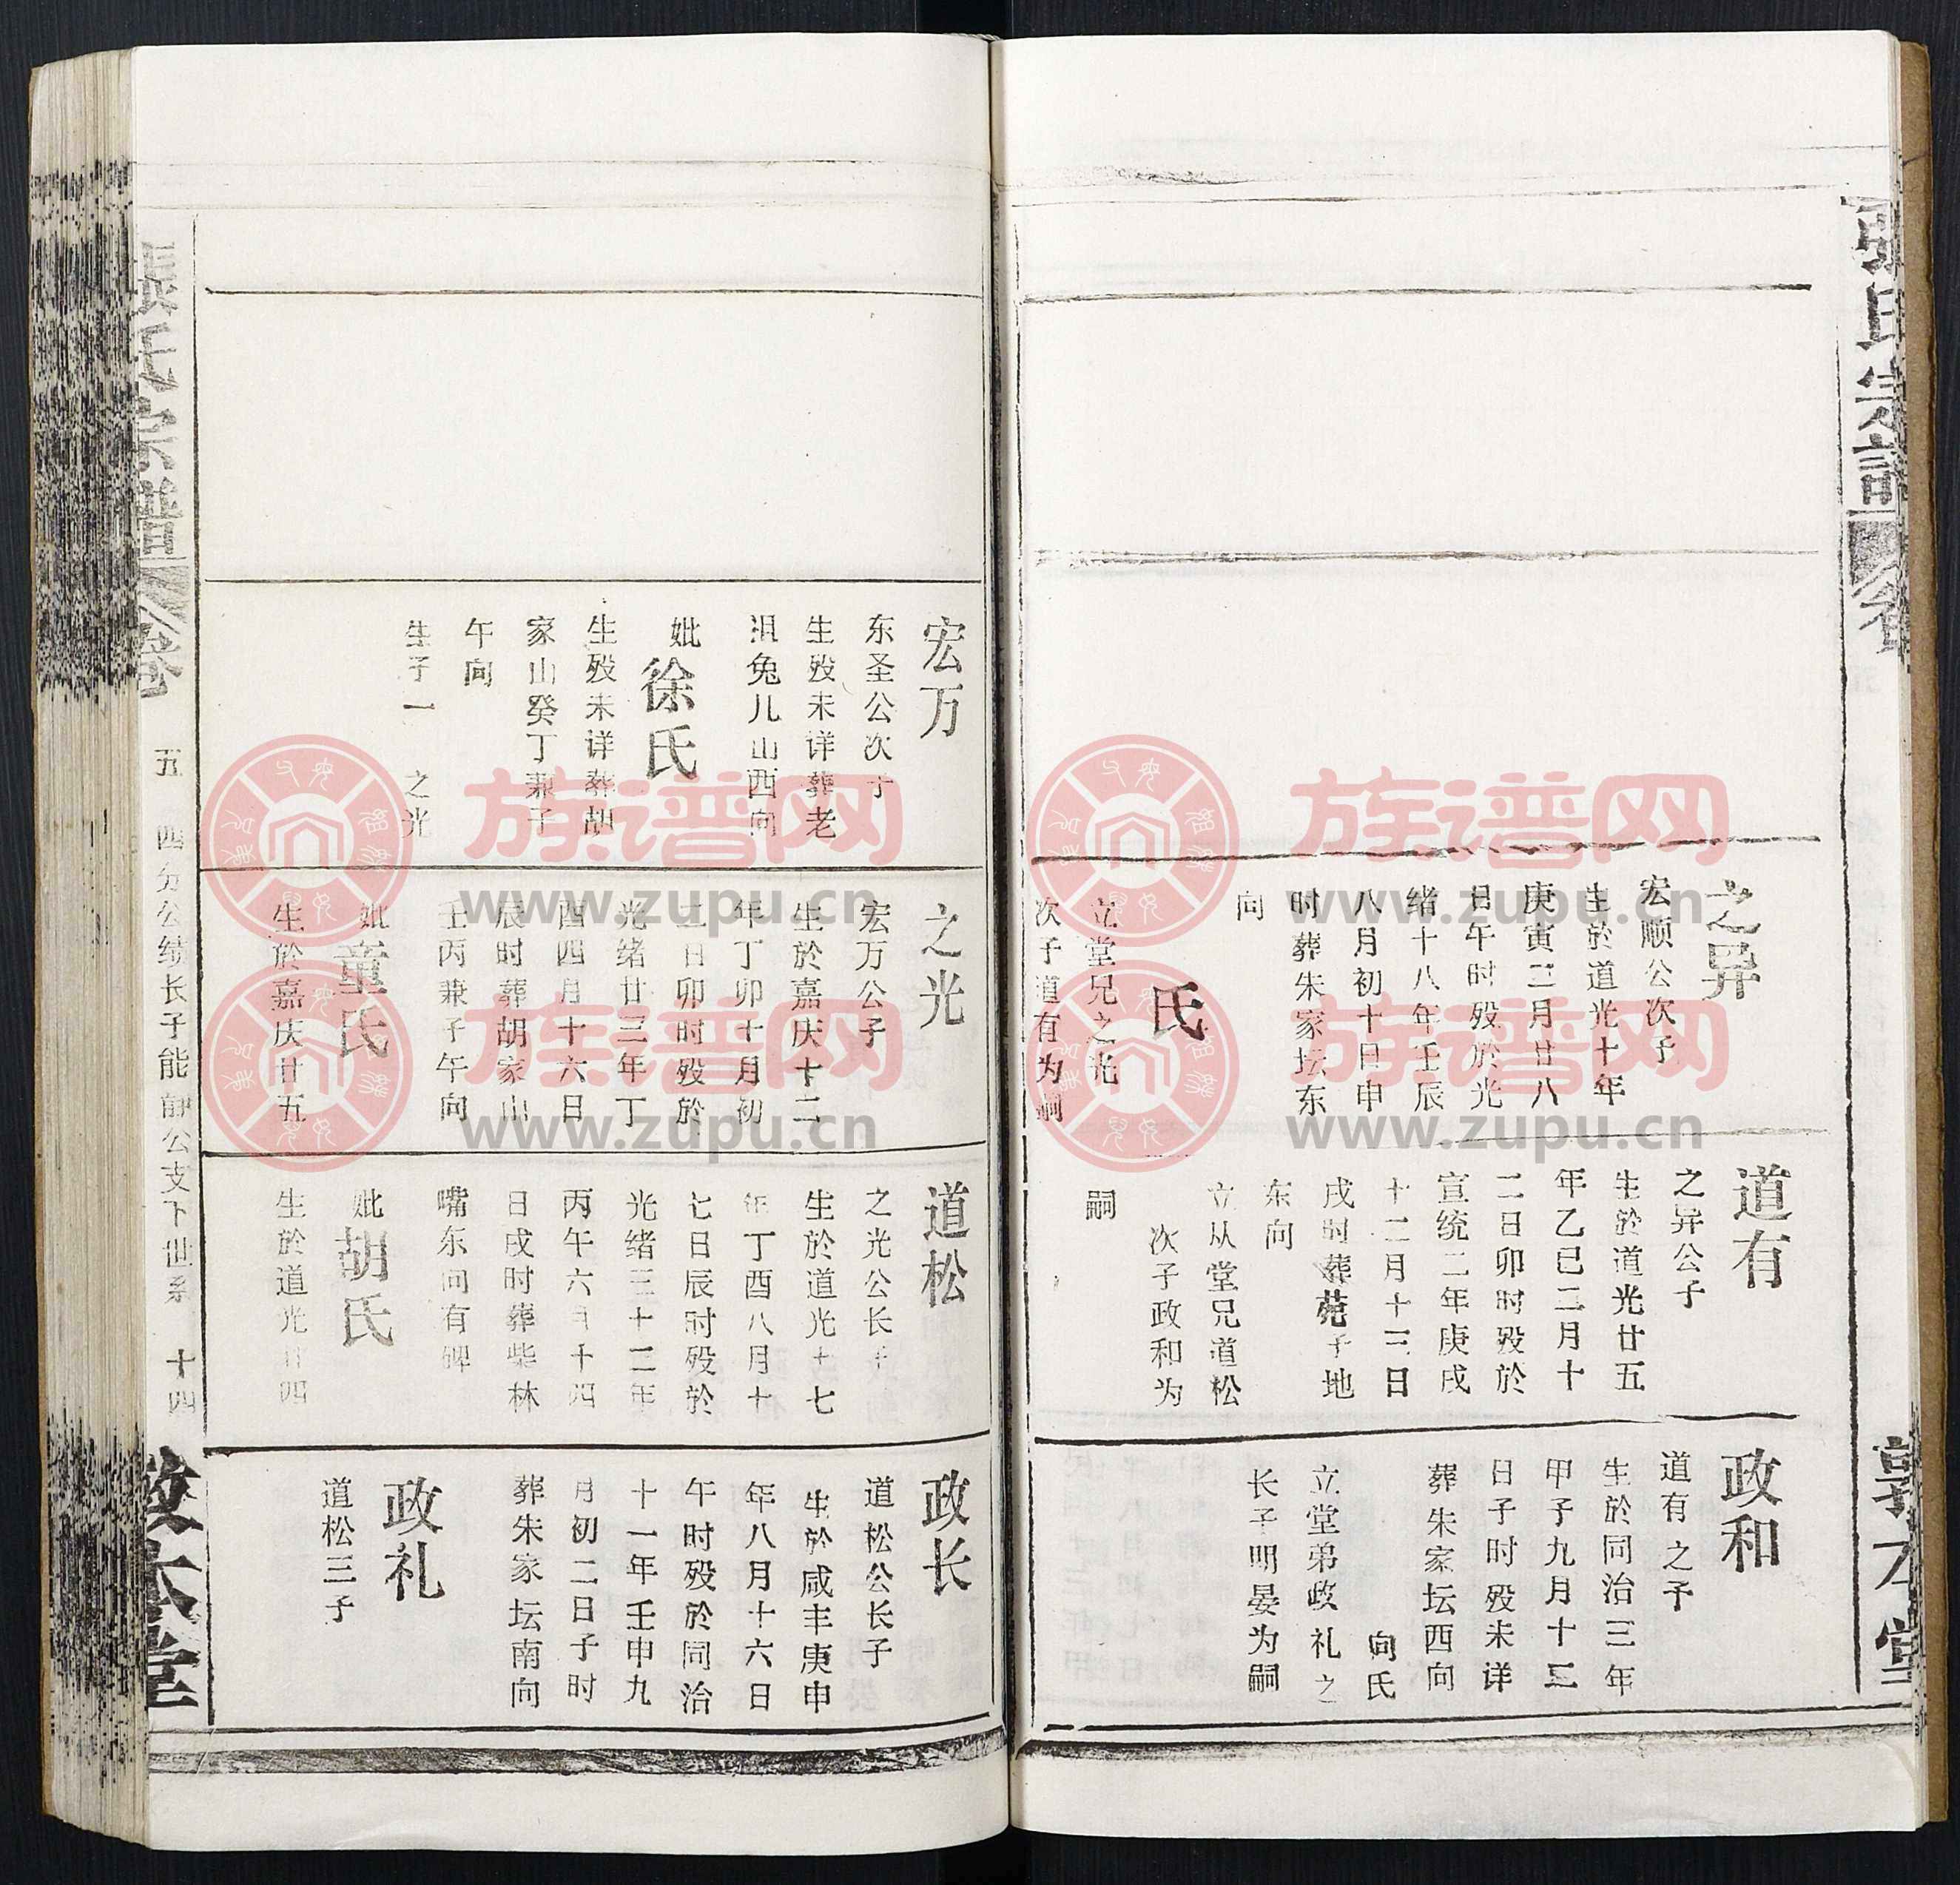 氏宗譜
卷
之异
宏顺公次子
生於道光十年
庚寅三月廿八
日午时殁於光
绪十八年壬辰
八月初十日申
时葬朱家坛东
向
氏
立堂兄之光
次子道有为嗣
道有
之异公子
生於道光廿五
年乙巳二月十
二日卯时殁於
宣统二年庚戌
十二月十三日
戌时葬苑子地
东向
立从堂兄道松
次子政和为
嗣
政和
道有之子
生於同治三年
甲子九月十三
日子时殁未详
葬朱家坛西向
向氏
立堂弟政礼之
长子明晏为嗣
本堂
宏万
东圣公次子
生殁未详葬老
沮兔儿山西向
妣徐氏
生殁未详葬胡
家山癸丁兼子
午向
生子一 之光
之光
宏万公子
生於嘉庆十二
年丁卯十月初
二日卯时殁於
光绪廿三年丁
酉四月十六日
辰时葬胡家山
壬丙兼子午向
妣童氏
生於嘉庆廿五
道松
之光公长子
生於道光十七
年丁酉八月十
七日辰时殁於
光绪三十二年
丙午六月十四
日戌时葬柴林
嘴东向有碑
妣胡氏
生於道光廿四
政长
道松公长子
生於咸丰庚申
年八月十六日
午时殁於同治
十一年壬申九
月初二日子时
葬朱家坛南向
政礼
道松三子
張氏宗譜 卷
五 四分公绩长子能静公支下世系 十四
本堂
族谱网
www.zupu.cn
族谱网
www.zupu.cn
族谱网
www.zupu.cn
族谱网
www.zupu.cn